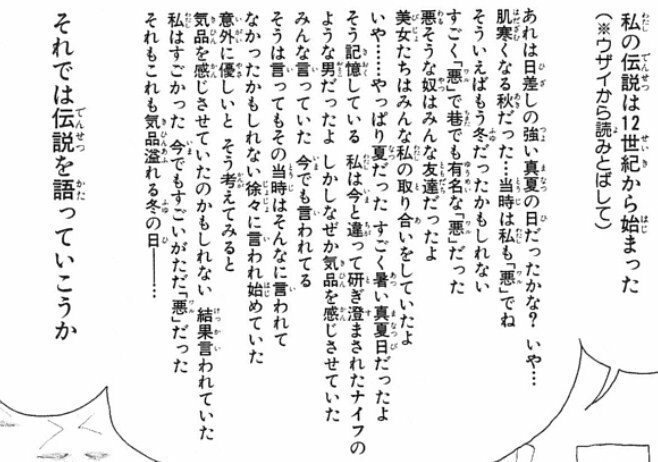 私の伝説は12世紀から始まった
(※ウザイから読みとばして)
あれは日差しの強い真夏の日だったかな？ いや…
肌寒くなる秋だった…当時は私も「悪」でね
そういえばもう冬だったかもしれない
すごく「悪」で巷でも有名な「悪」だった
悪そうな奴はみんな友達だったよ
美女たちはみんな私の取り合いをしていたよ
いや……やっぱり夏だった すごく暑い真夏日だったよ
そう記憶している 私は今と違って研ぎ澄まされたナイフの
ような男だったよ しかしなぜか気品を感じさせていた
みんな言っていた 今でも言われてる
そうは言ってもその当時はそんなに言われて
なかったかもしれない徐々に言われ始めていた
意外に優しいと そう考えてみると
気品を感じさせていたのかもしれない 結果言われていた
私はすごかった 今でもすごいがただ「悪」だった
それもこれも気品溢れる冬の日―――
それでは伝説を語っていこうか